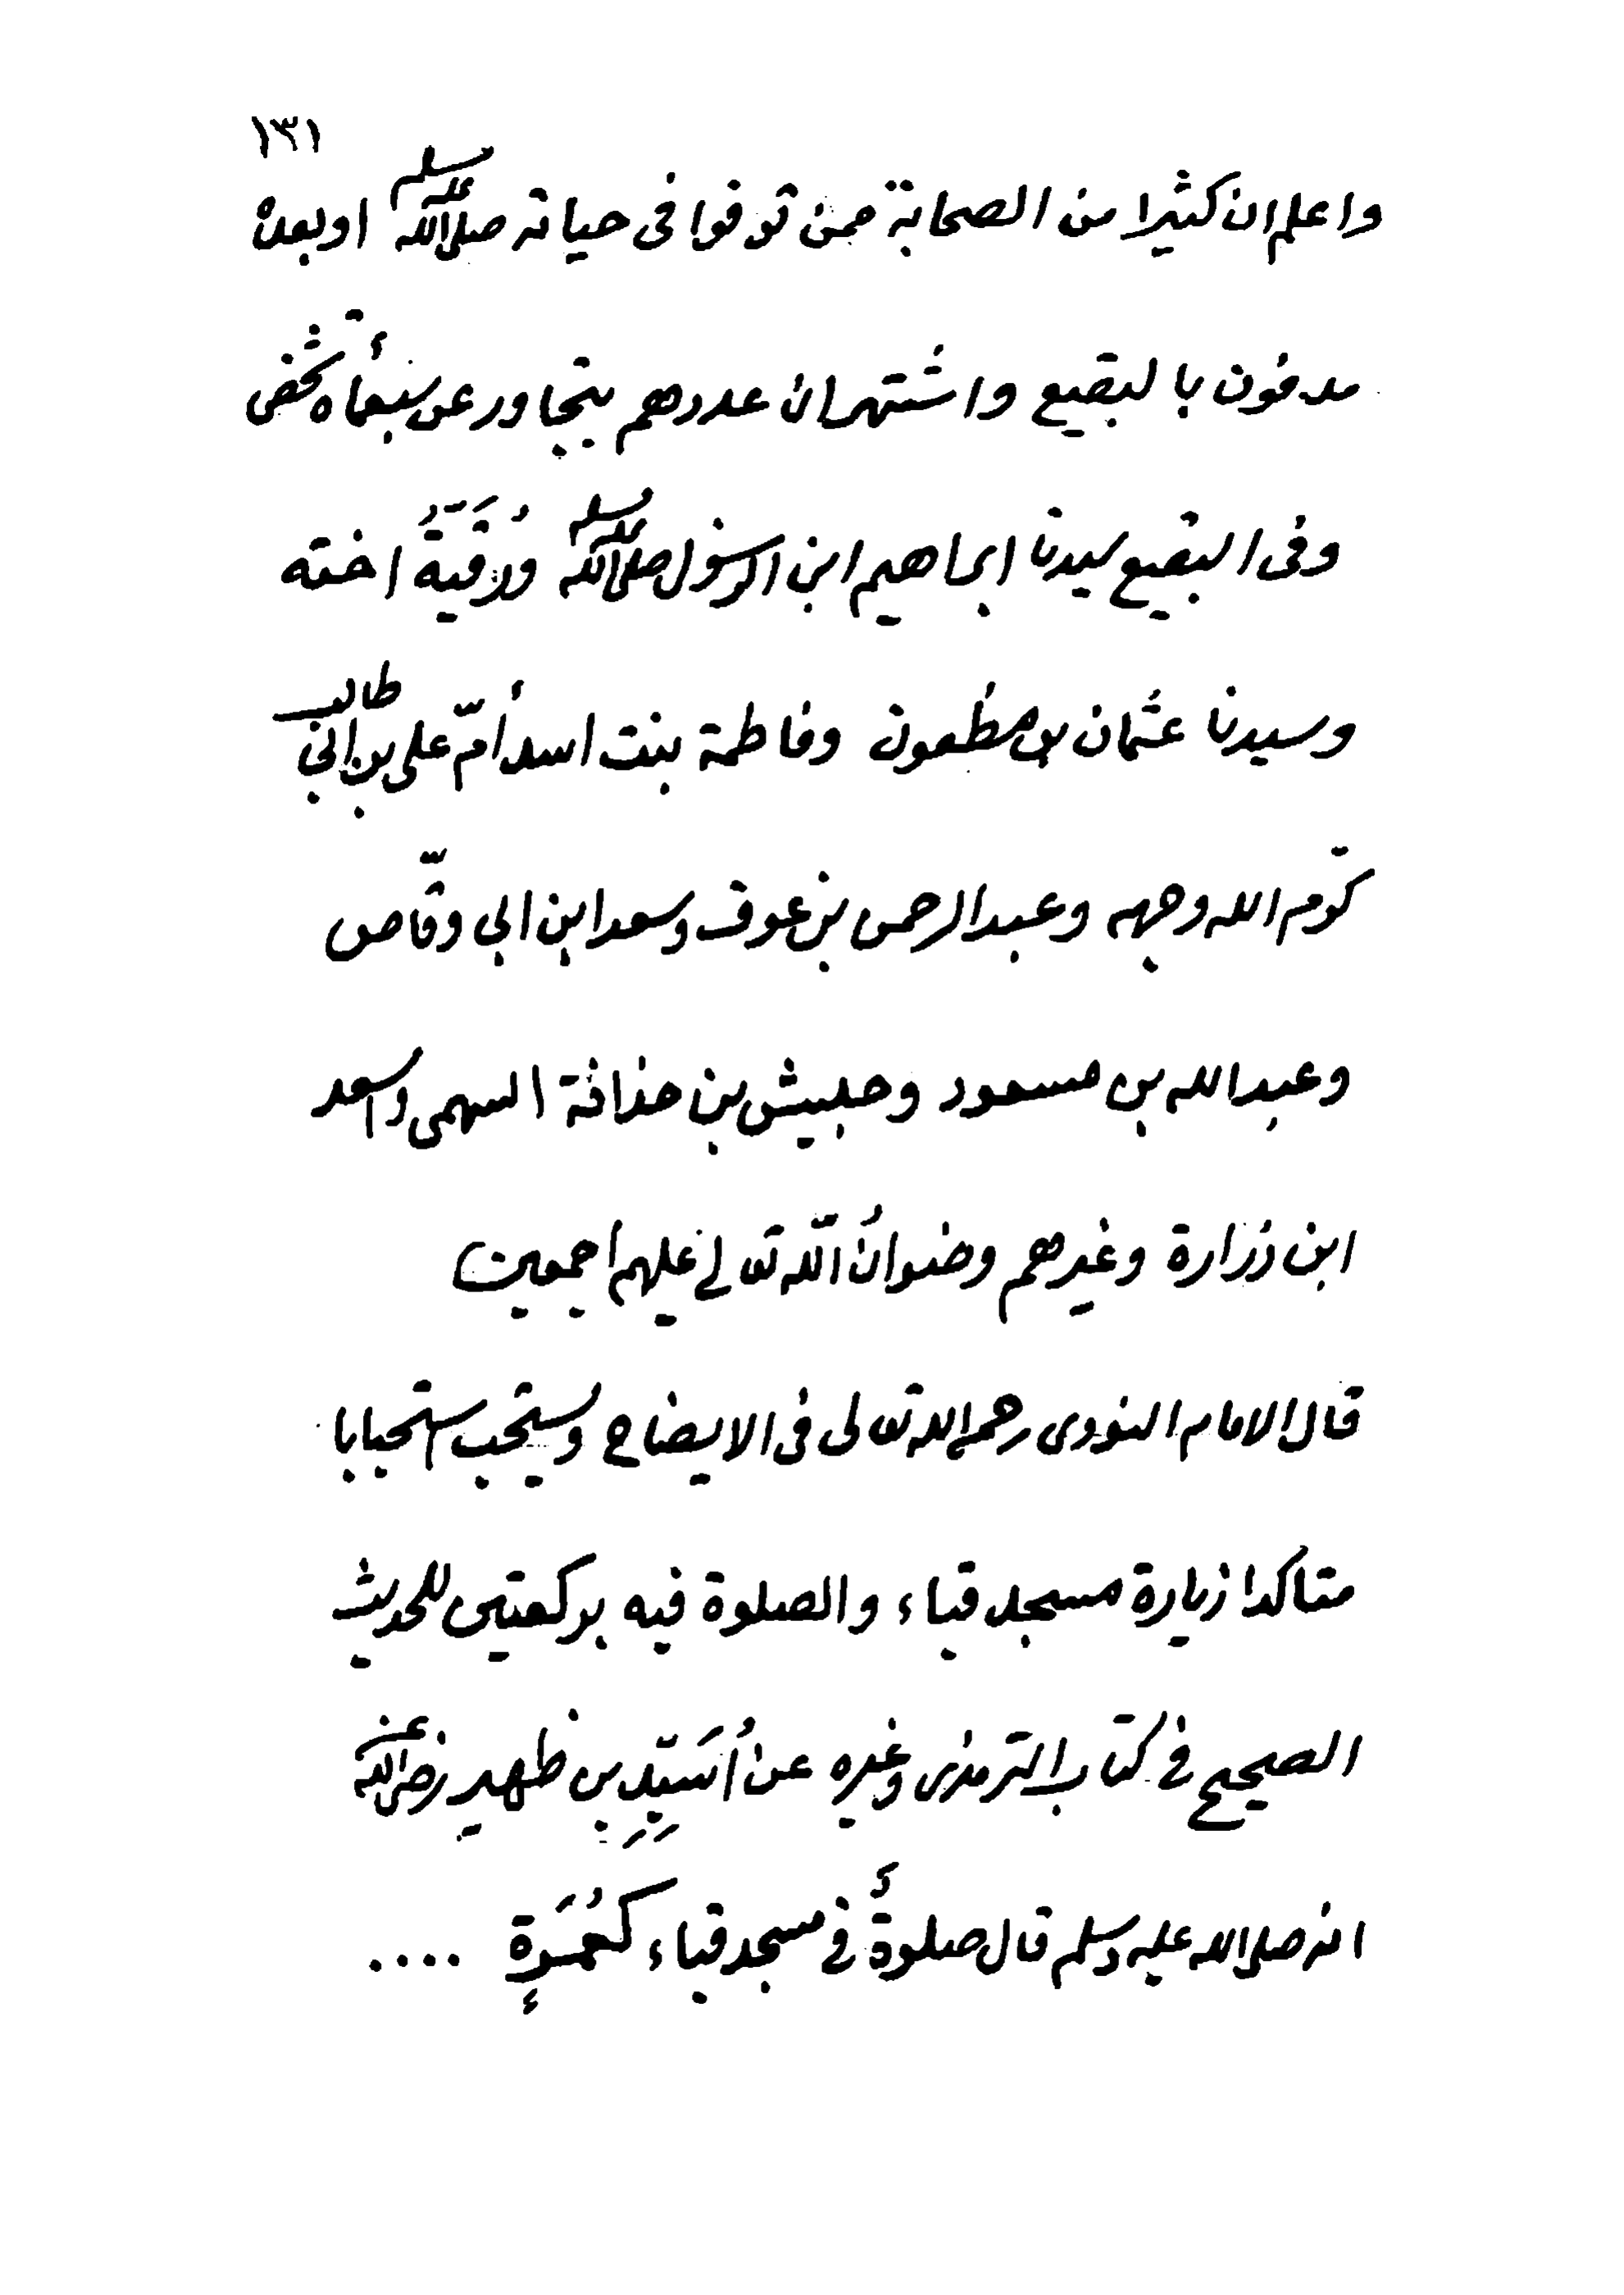 ١٣١
واعلم ان كثيرا من الصحابة ممن توفوا في حياته صلى الله عليه وسلم او بعده
مدفون بالبقيع واشتهر ان عددهم يتجاوز عن سبعمأة شخص
وفى البقيع سيدنا ابراهيم ابن الرسول صلى الله عليه وسلم ورُقَيَّةُ اخته
وسيدنا عثمان بن مظعون وفاطمة بنت اسد أمّ على بن ابي طالب
كرّم الله وجهه وعبد الرحمن بن عوف وسعد ابن ابي وقّاص
وعبد الله بن مسعود وحبيش بن حذافة السهمى واسعد
ابن زرارة وغيرهم رضوانُ اللّه تعالى عليهم اجمعين
قال الامام النووى رحمه الله تعالى فى الايضاح ويستحب استحبابا
متاكدا زيارة مسجد قباء والصلوة فيه بركعتين للحديث
الصحيح في كتاب الترمذى وغيره عن أُسَيِّدِ بن ظهير رضي الله عنه
انه صلى الله عليه وسلم قال صلوةٌ في مسجد قباء كعُمَرَةٍ ....